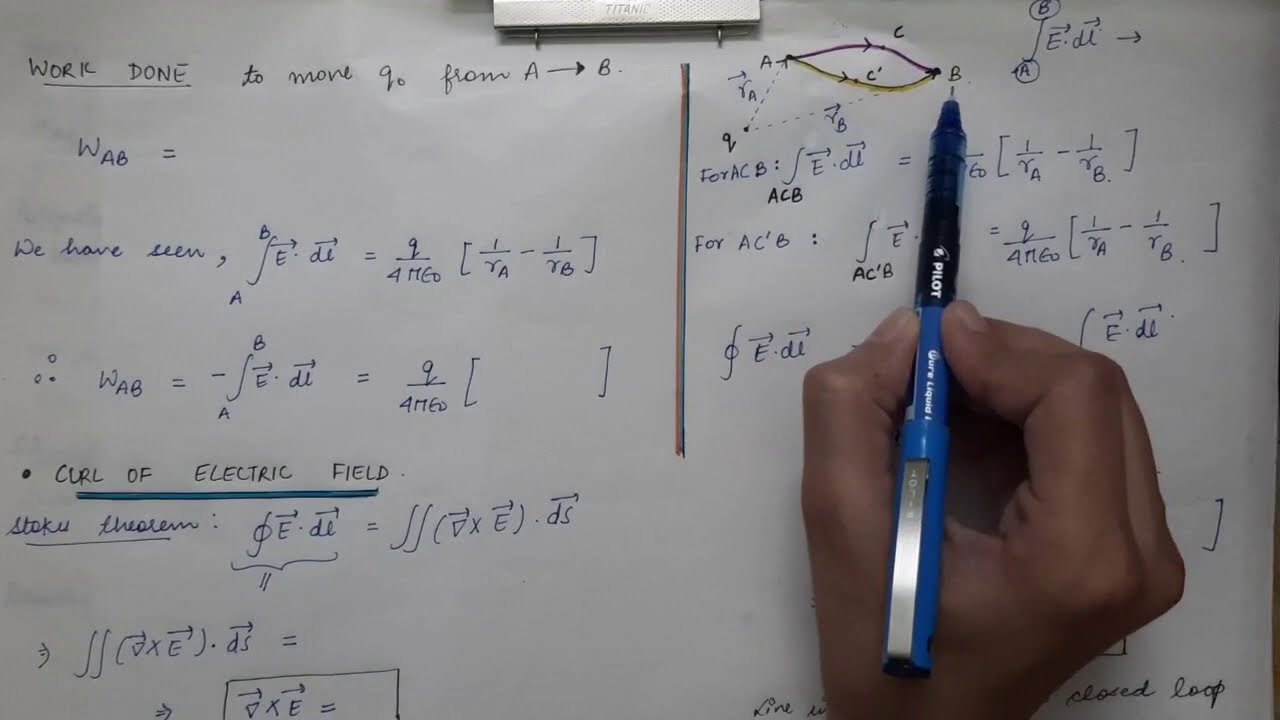 TITANIC
WORK DONE to move q₀ from A → B.
W_AB =
We have seen, ∫_A^B E⃗ · dl⃗ = q/4πε₀ [1/r_A − 1/r_B]
∴ W_AB = −∫_A^B E⃗ · dl⃗ = q/4πε₀ [ ]
• CURL OF ELECTRIC FIELD.
Stokes theorem: ∮E⃗ · dl⃗ = ∬(∇⃗ × E⃗) · ds⃗
=
⇒ ∬(∇⃗ × E⃗) · ds⃗ =
⇒ ∇⃗ × E⃗ =
A C C' B.
r⃗_A r⃗_B
q
∫_A^B E⃗ · dl⃗ →
For ACB: ∫_ACB E⃗ · dl⃗ = [1/r_A − 1/r_B.]
For AC'B: ∫_AC'B E⃗ · = q/4πε₀ [1/r_A − 1/r_B.]
∮ E⃗ · dl⃗ ∫ E⃗ · dl⃗
]
Line closed loop
PILOT
Pure Liquid